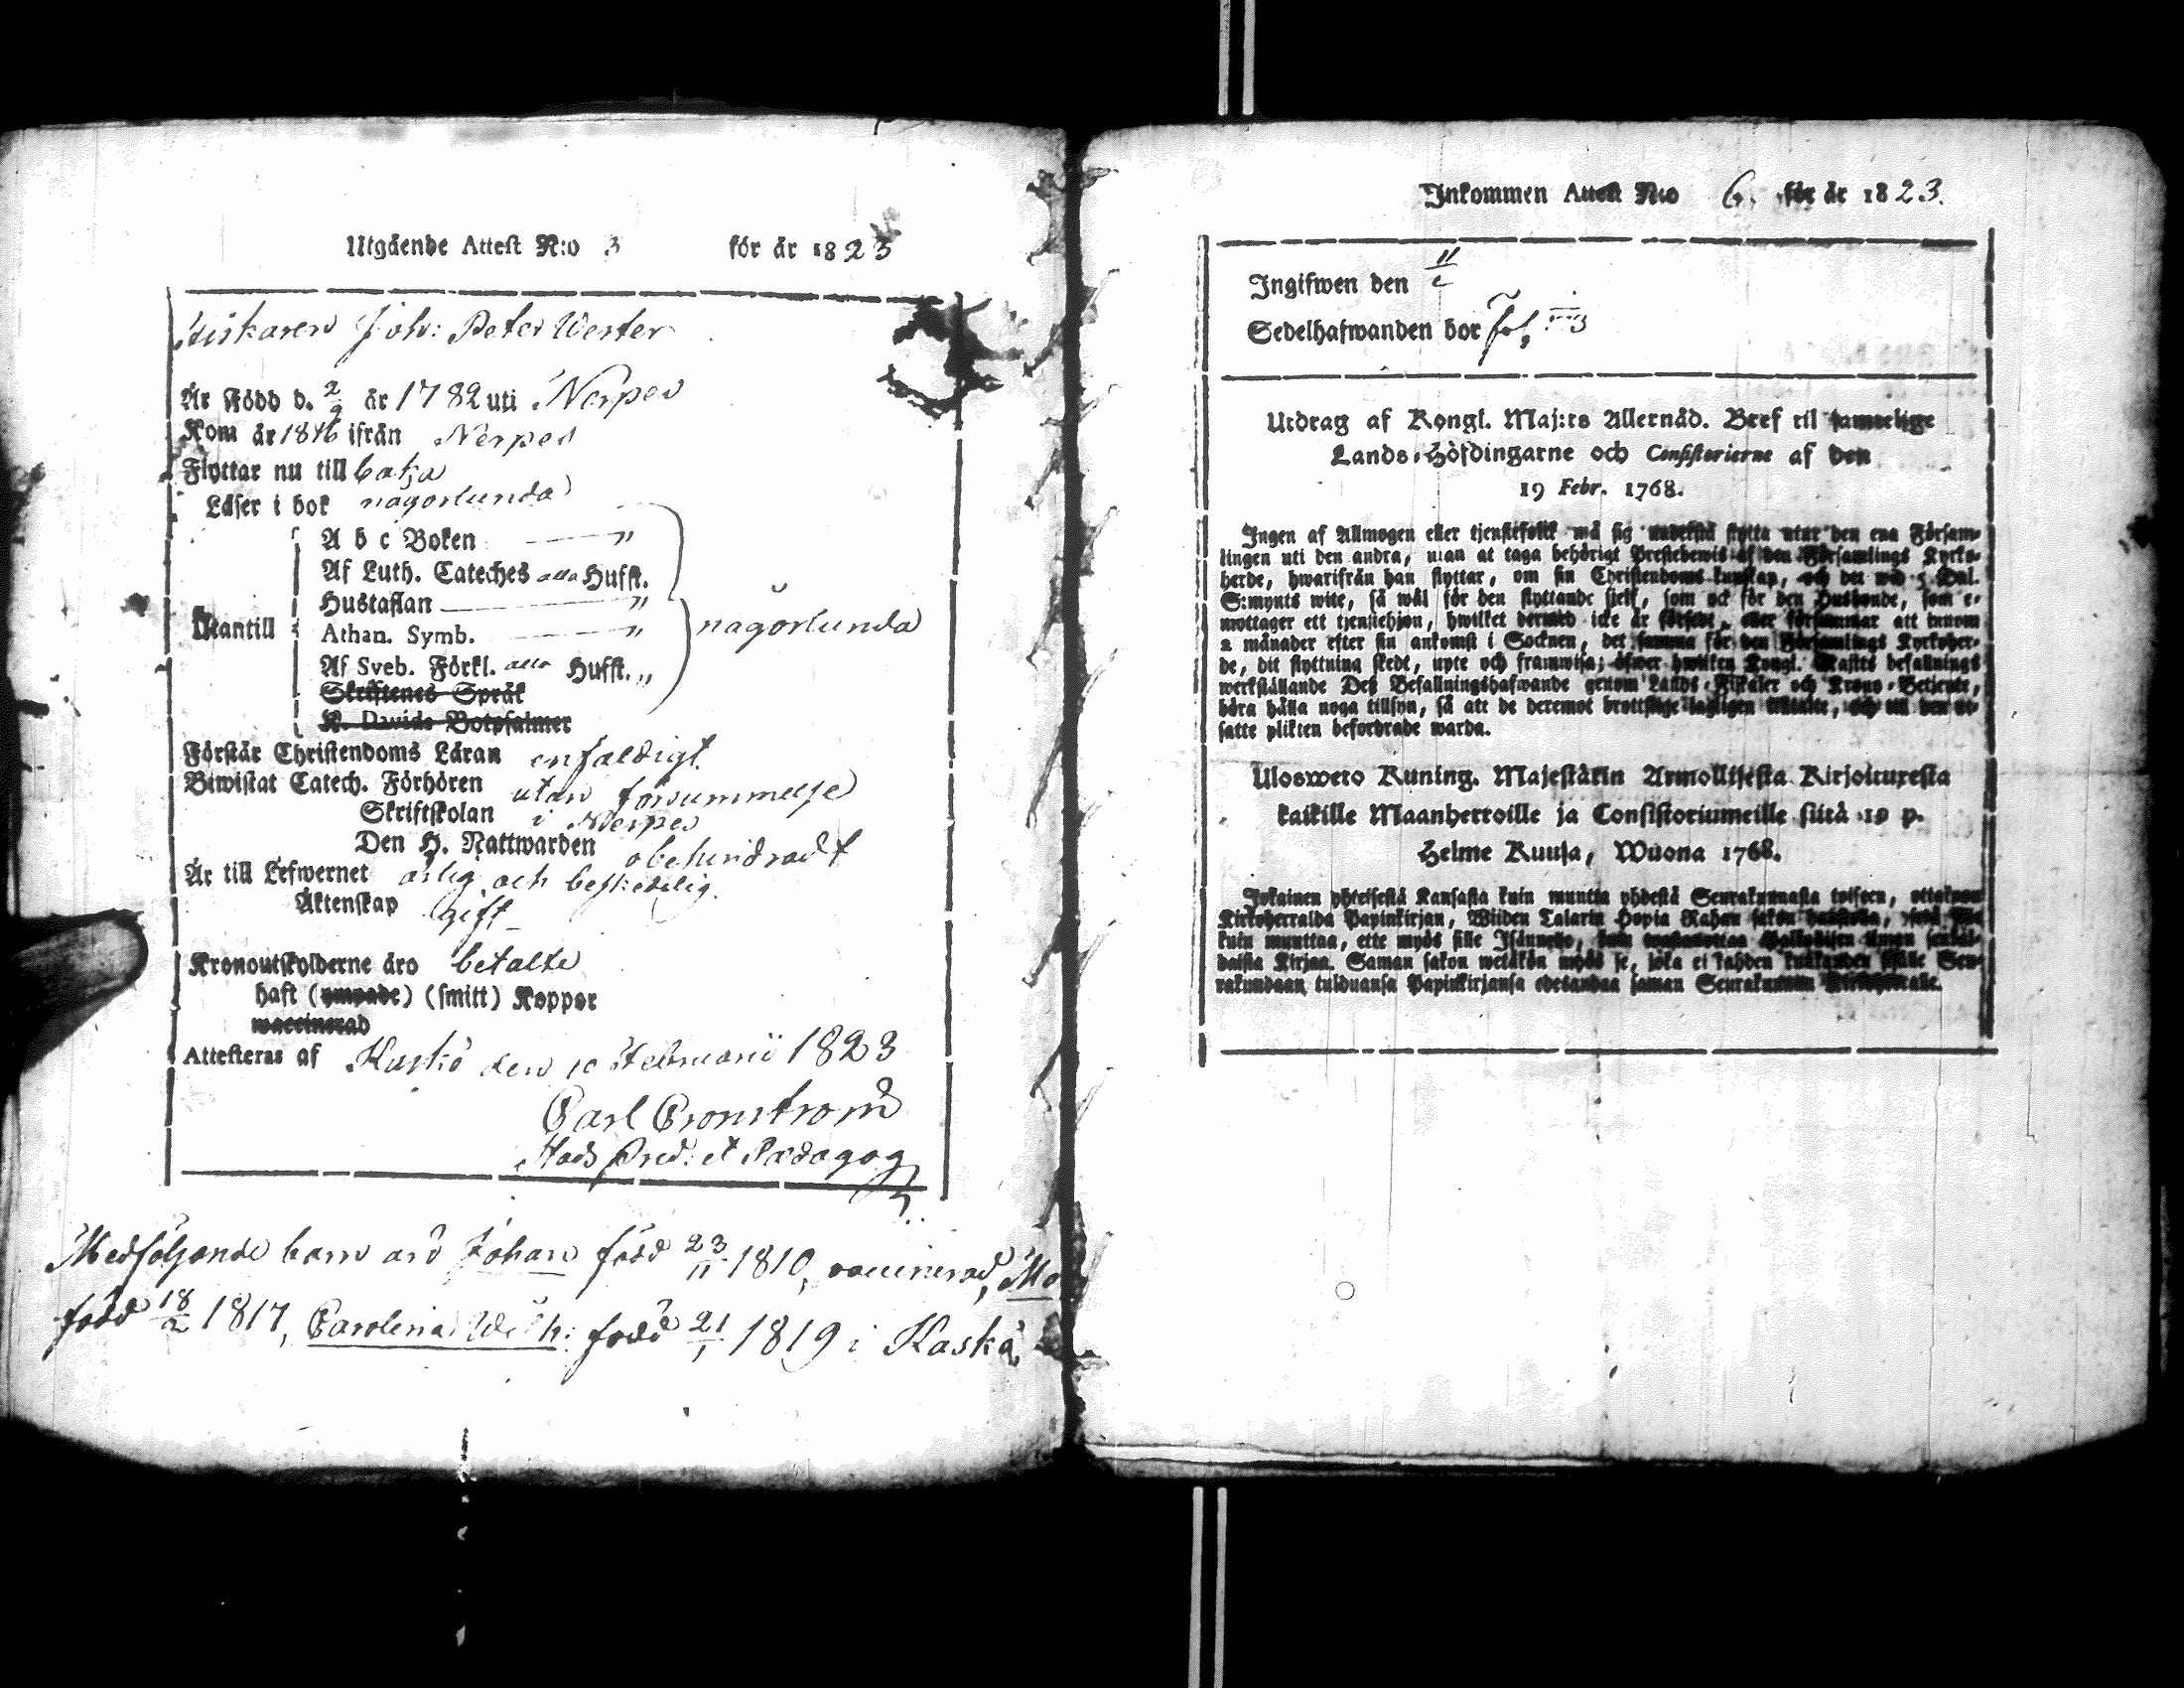 Utgående Attest N:o 3 för år 1823
Fiskaren Joh: Peter Wester
Är Född d. 2/9 år 1782 uti Nerpes
Kom år 1816 ifrån Nerpes
Flyttar nu till
Läser i bok någorlunda
A b c Boken — "
Af Luth. Cateches alla Hufst.
Hustaflan — "
Utantill Athan. Symb. — " någorlunda
Af Sveb. Förkl. alla Hufst. "
Skriftenes Språk
K. Davids Botpsalmer
Förstår Christendoms Läran enfaldigt
Biwistat Catech. Förhören utan försummelse
Skriftskolan i Nerpes
Den H. Nattwarden obehindradt
Är till Lefwernet ärlig och beskedelig.
Äktenskap gift
Kronoutskylderne äro betalte
haft (ympade) (smitt) Koppor
waccinerad
Attesteras af Kaskö den 10 Februarii 1823
Carl Cronstrom
Stads Pred: et Pædagog
Medföljande barn äro Johan född 23/11 1810, vaccinerad, Ma
född 18/2 1817, Carolina Wilh: född 21/1 1819 i Kaskö
Inkommen Attest N:o 6. för år 1823.
Ingifwen den 11/2
Sedelhafwanden bor
Utdrag af Kongl. Maj:ts Allernåd. Bref til samtelige
Lands-Höfdingarne och Consistorierne af den
19 Febr. 1768.
Ingen af Allmogen eller tjenstefolck må sig understå flytta utur den ena Försam-
lingen uti den andra, utan at taga behörigt Prestebewis af den Församlings Kyrko-
herde, hwarifrån han flyttar, om sin Christendoms kunskap, och det wid 5 Dal.
S:mynts wite, så wäl för den flyttande sjelf, som ock för den Husbonde, som e-
mottager ett tjenstehjon, hwilket dermed icke är försedt, eller försummar att innom
2 månader efter sin ankomst i Socknen, det samma för den Församlings Kyrkoher-
de, dit flyttning skedt, upte och framwisa; öfwer hwilken Kongl. Maj:ts befallnings
werkställande Dess Befallningshafwande genom Lands-Fiskaler och Krono-Betjente,
böra hålla noga tillsyn, så att de deremot brottslige lagligen tilltalte, och till den ut-
satte plikten befordrade warda.
Ulosweto Kuning. Majestätin Armollisesta Kirjoituxesta
kaikille Maanherroille ja Consistoriumeille siitä 19 p.
Helme Kuusa, Wuona 1768.
Jokainen yhteisestä Kansasta kuin muutta yhdestä Seurakunnasta toiseen, ottakoon
Kirkoherralda Papinkirjan, Wiiden Talarin Hopia Rahan sakon
kuin muuttaa, ette myös sille Isännelle, kuin wastanottaa Palkollisen ilman senkal-
daista Kirjaa. Saman sakon wetäkön myös se, joka ei kahden kuukauden sisälle Seu-
rakundaan tulduansa Papinkirjansa edesandaa saman Seurakunnan Kirkoherralle.